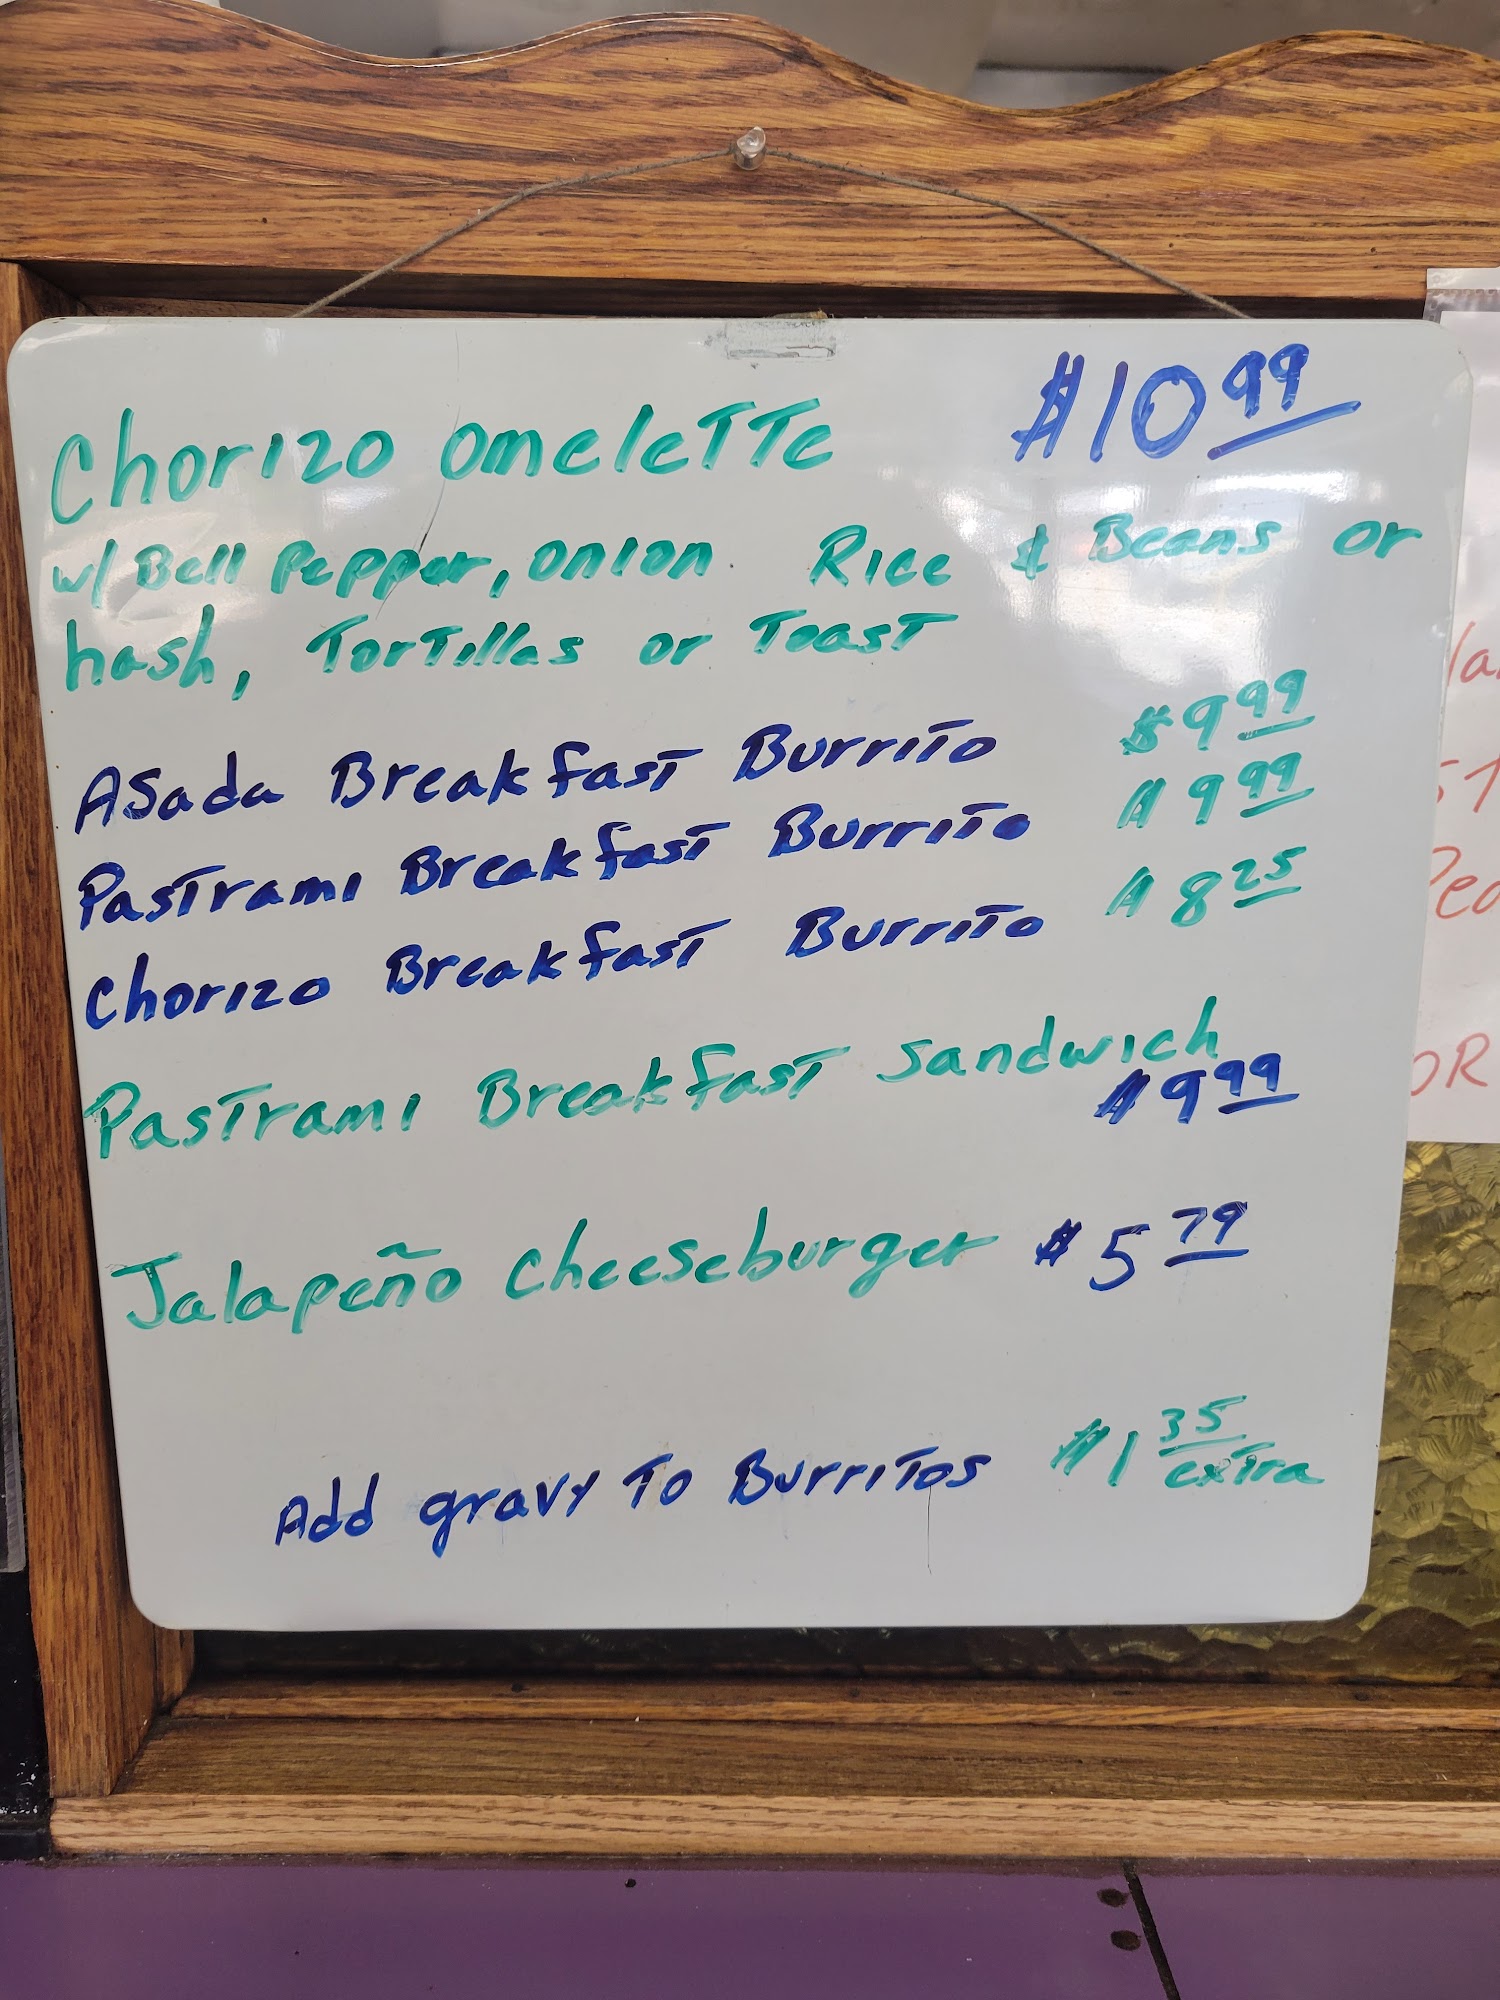 Chorizo Omelette $10.99
w/ Bell Pepper, Onion Rice & Beans or
hash, Tortillas or Toast
Asada Breakfast Burrito $9.99
Pastrami Breakfast Burrito $9.99
Chorizo Breakfast Burrito $8.25
Pastrami Breakfast Sandwich
$9.99
Jalapeño Cheeseburger $5.79
Add gravy To Burritos $1.35
extra
OR